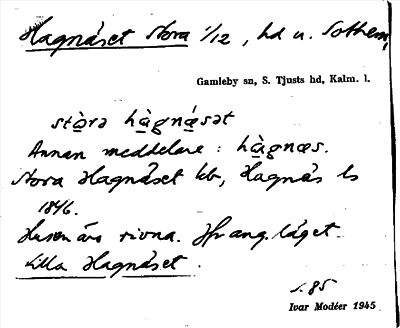 Hagnäset Stora 1/12, hd u. Sothem,
Gamleby sn, S. Tjusts hd, Kalm. l.
stòrə hàgnǽsət
Annan meddelare : hàgnæs.
Stora Hagnäset kb, Hagnäs ls
1846.
Husen äro rivna. Jfr ang. läget
Lilla Hagnäset.
s. 85
Ivar Modéer 1945